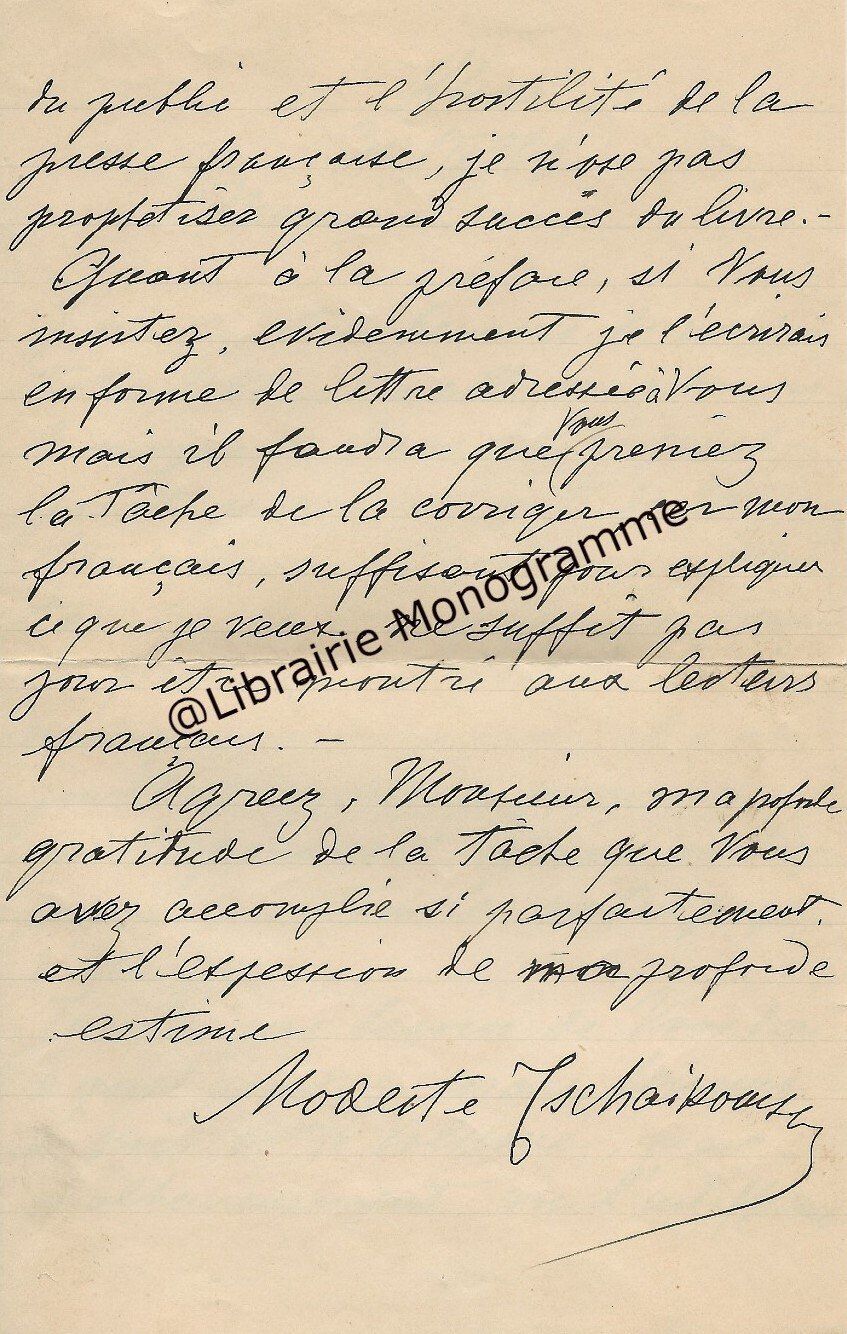 du public et l'hostilité de la
presse française, je n'ose pas
prophetiser grand succès du livre.-
Quant à la préface, si Vous
insistez, evidemment je l'ecrirais
en forme de lettre adressée à Vous
mais il faudra que Vous preniez
la tâche de la corriger car mon
français, suffisant pour expliquer
ce que je veux ne suffit pas
pour être montré aux lecteurs
français. -
Agreez, Monsieur, ma pofode
gratitude de la tâche que Vous
avez accomplie si parfaitement.
et l'expession de mon profode
estime
Modeste Tschaikowsky
@Librairie Monogramme